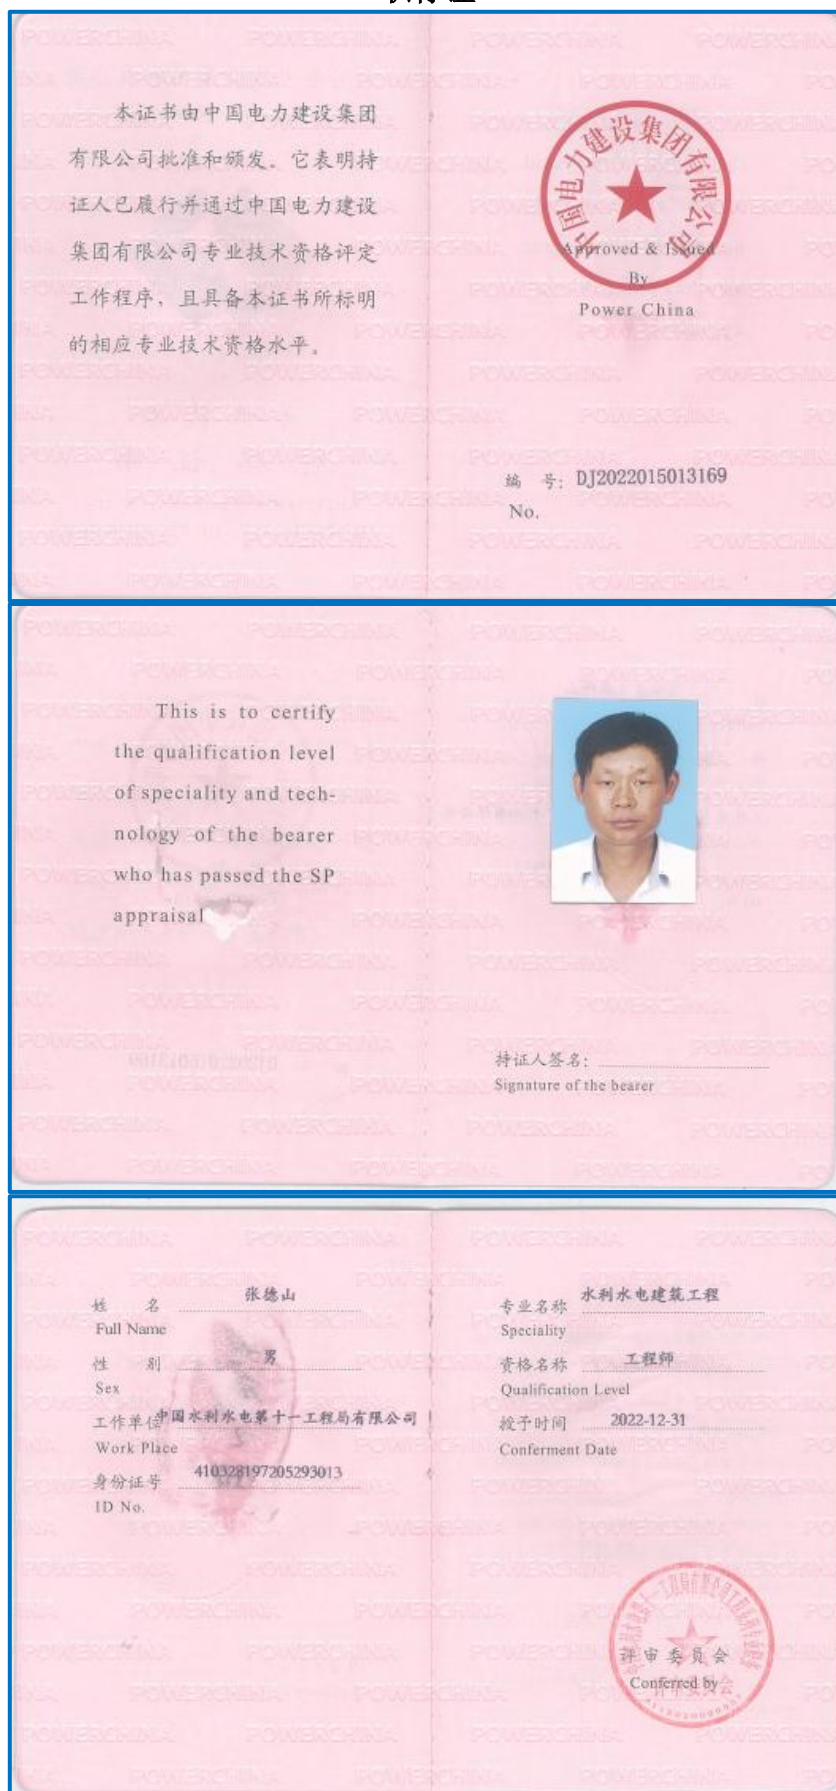 本证书由中国电力建设集团
有限公司批准和颁发。它表明持
证人已履行并通过中国电力建设
集团有限公司专业技术资格评定
工作程序，且具备本证书所标明
的相应专业技术资格水平。
中国电力建设集团有限公司
Approved & Issued
By
Power China
编 号：DJ2022015013169
No.
This is to certify
the qualification level
of speciality and tech-
nology of the bearer
who has passed the SP
appraisal
持证人签名：
Signature of the bearer
姓 名 张德山
Full Name
性 别 男
Sex
工作单位 中国水利水电第十一工程局有限公司
Work Place
身份证号 410328197205293013
ID No.
专业名称 水利水电建筑工程
Speciality
资格名称 工程师
Qualification Level
授予时间 2022-12-31
Conferment Date
评审委员会
Conferred by
评审委员会
POWERCHINA